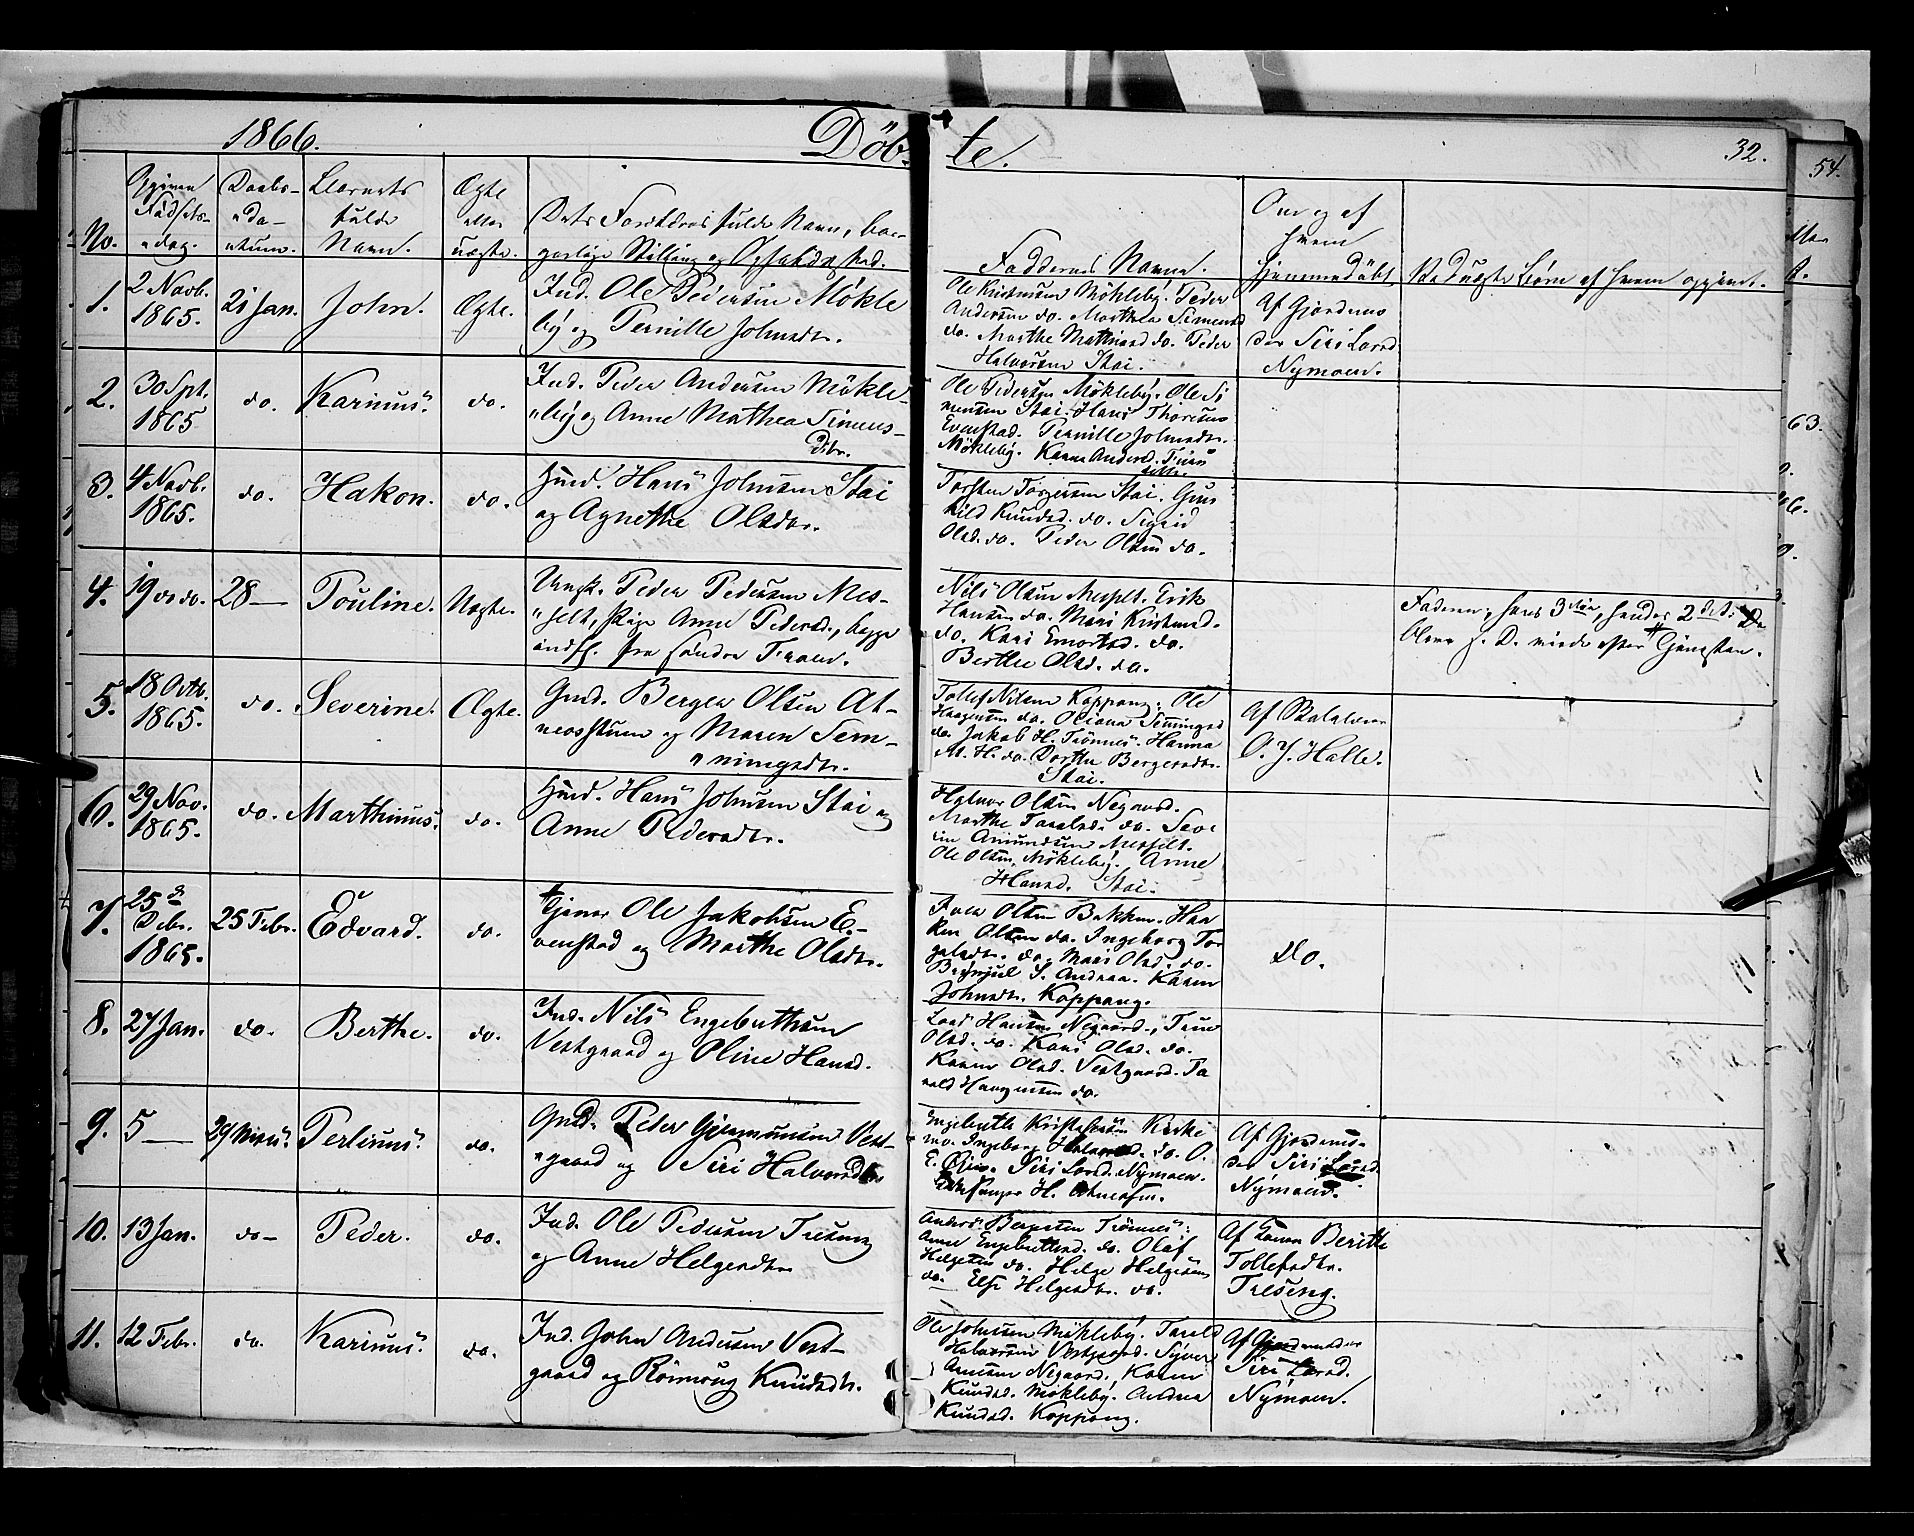 1866. Döb- te. 32.
54.
No.
Opgiven Fødsels- dag.
Daabs- da- tum.
Barnets fulde Navn.
Ægte eller uægte.
Dets Forældres fulde Navn, bor-
gerlige Stilling og Opholdssted.
Faddernes Navne.
Om og af hvem hjemmedöbt.
Ved uægte Börn af hvem opgivet.
1.
2 Novb. 1865.
21 Jan.
John.
Ægte.
Ind. Ole Pedersen Mökle
by og Pernille Johnsdtr.
Ole Kristensen Mökleby. Peder
Andersen do. Marthea Simensd
do. Marthe Mathiasd do. Peder
Halvorsen Stai.
Af Gjordemo
der Siri Larsd
Nymoen.
2.
30 Spt. 1865
do.
Karinus.
do.
Ind. Peder Andersen Mökle-
by og Anne Mathea Simens-
dtr.
Ole Pedersen Mökleby. Ole Si
mensen Stai. Hans
Evenstad. Pernille Johnsdtr.
Mökleby. Karen Andersd.
3.
4 Novb. 1865.
do.
Hakon.
do.
Hmd. Hans Johnsen Stai
og Agnethe Olsdtr.
Torsten Torgersen Stai. Gun
hild Knudsd. do. Sigrid
Olsd. do. Peder Olsen do.
4.
19 do do.
28 —
Pouline.
Uægte.
Ungk. Peder Pedersen Mes-
selt, Pige Anne Pedersd., begge
indfl. fra söndre Fraan.
Nils Olsen Messelt. Erik
Hansen do. Mari Kristensd.
do. Kari do.
Berthe Olsd. do.
Faderen; hans 3die, hendes 2det. De
bleve s. D. viede efter Tjenesten.
5.
18 Octb. 1865.
do.
Severine.
Ægte.
Gmd. Berger Olsen At-
neosstuen og Maren Sem-
mingsdtr.
Tollef Nilsen Koppang. Ole
Haagensen do. Oliana Semmingsd
do. Jakob H. Trönnes. Hanna
M. H. do. Dorthe Bergersdtr.
Stai.
Af Skolelærer
O. J. Halle.
6.
29 Nov. 1865.
do.
Marthinus.
do.
Hmd. Hans Johnsen Stai og
Anne Pedersdtr.
Halvor Olsen Negaard.
Marthe Taraldsd. do. Seve
rin Amundsen Messelt.
Ole Olsen Möklebÿ. Anne
Hansd. Stai.
7.
25de Debr. 1865.
25 Febr.
Edvard.
do.
Tjener Ole Jakobsen E-
venstad og Marthe Olsdtr.
Iver Olsen Bakken. Haa
ken Olsen do. Ingeborg Tor
gelsdtr. do. Mari Olsd. do.
Bernjul S. Andraa. Karen
Johnsdtr. Koppang.
Do.
8.
27 Jan.
do.
Berthe.
do.
Ind. Nils Engebrethsen
Vestgaard og Oline Hansd.
Lars Hansen Negaard.
Olsd. do. Kari Olsd. do.
Karen Olsd. Vestgaard. Ta
rald Haagensen do.
9.
5 —
29 Marts.
Perlinus.
do.
Gmd. Peder Gjermunsen Vest-
gaard og Siri Halvorsdtr
Engebreth Kristofersen Kirke
mo. Ingeborg Halvorsd. do. O.
E. Siri Larsd. Nymoen.
H.
Af Gjordemo-
der Siri Larsd.
Nymoen.
10.
13 Jan.
do —
Peder.
do.
Ind. Ole Pedersen Treseng
og Anne Helgesdtr.
Anders Bersvensen Trönnes.
Anne Engebrethsd. do. Olaf
Helgesen do. Helge Helgesen
do. Else Helgesdtr. do.
Af Konen Berithe
Tollefsdtr.
Treseng.
11.
12 Febr.
do.
Karinus.
do.
Ind. John Andersen Vest-
gaard og Rönnoug Knudsdtr.
Ole Johnsen Möklebÿ. Tarald
Halvorsen Vestgaard. Syver
Arnesen Negaard. Karen
Knudsd. Möklebÿ. Andrea
Knudsd. Koppang.
Af Gjordemoder
Siri Larsd.
Nymoen.